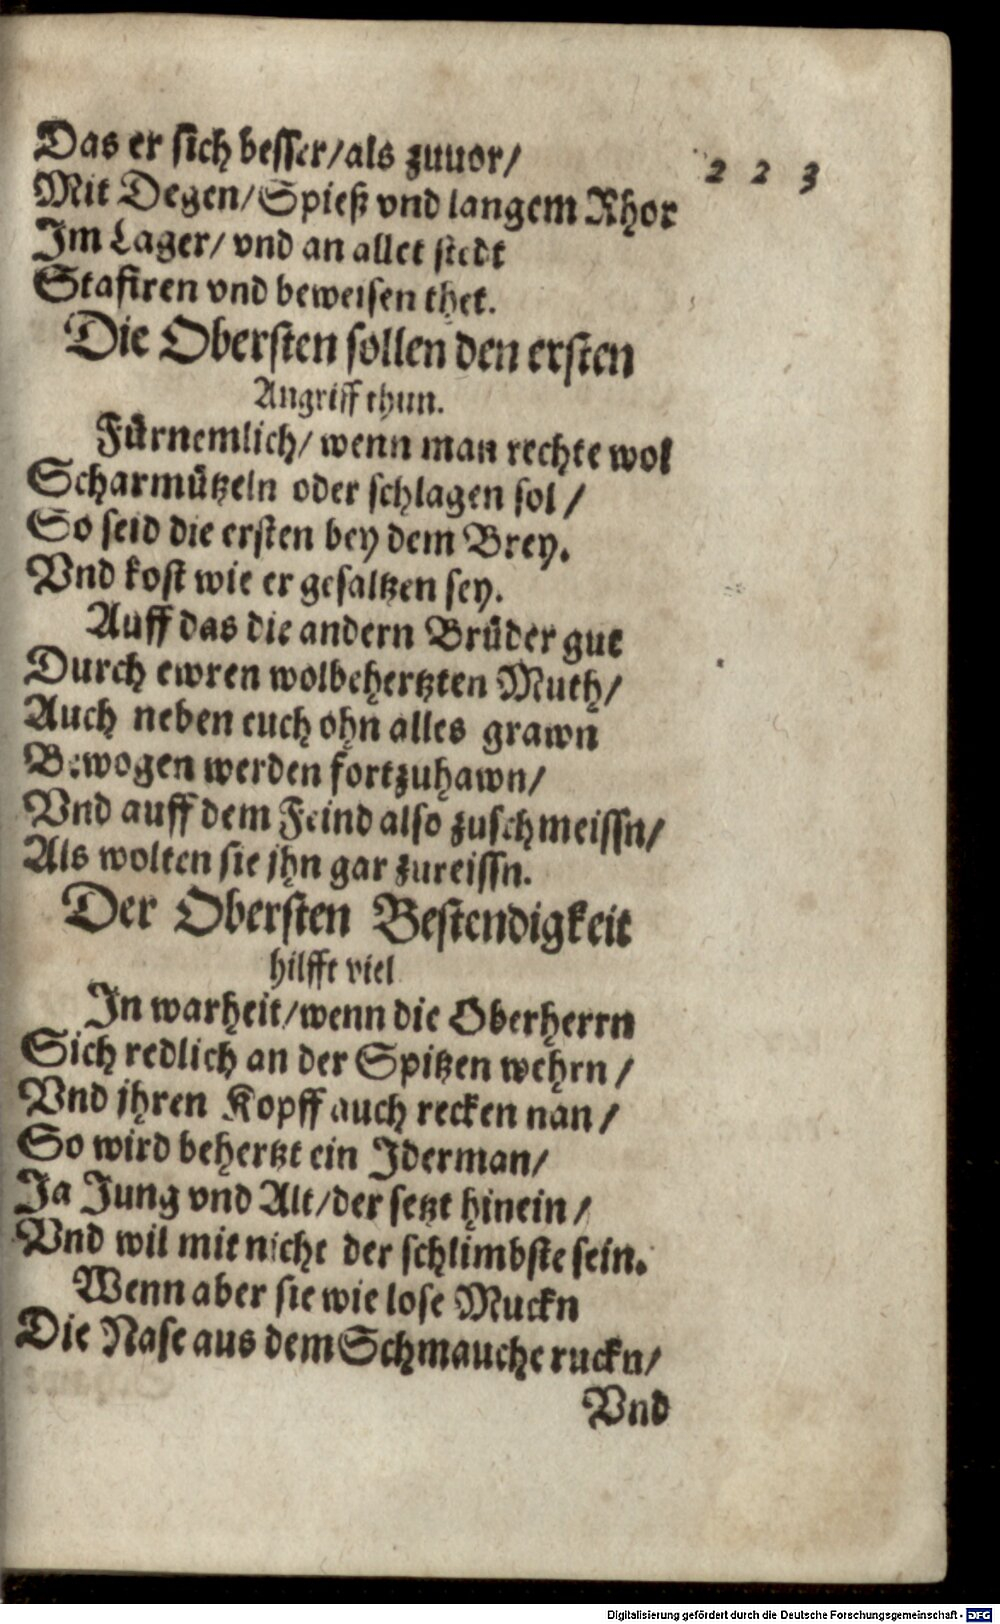 223
Das er sich besser/als zuuor/
Mit Degen/Spieß vnd langem Rhor
Im Lager/ vnd an allet stedt
Stafiren vnd beweisen thet.
Die Obersten sollen den ersten
Angriff thun.
Fürnemlich/ wenn man rechte wol
Scharmützeln oder schlagen sol/
So seid die ersten bey dem Brey.
Vnd kost wie er gesaltzen sey.
Auff das die andern Brüder gut
Durch ewren wolbehertzten Muth/
Auch neben euch ohn alles grawn
Bewogen werden fortzuhawn/
Vnd auff dem Feind also zuschmeissn/
Als wolten sie jhn gar zureissn.
Der Obersten Bestendigkeit
hilfft viel
In warheit/wenn die Oberherrn
Sich redlich an der Spitzen wehrn/
Vnd jhren Kopff auch recken nan/
So wird behertzt ein Jderman/
Ja Jung vnd Alt/der setzt hinein/
Vnd wil mit nicht der schlimbste sein.
Wenn aber sie wie lose Muckn
Die Nase aus dem Schmauche ruckn/
Vnd
Digitalisierung gefördert durch die Deutsche Forschungsgemeinschaft - DFG